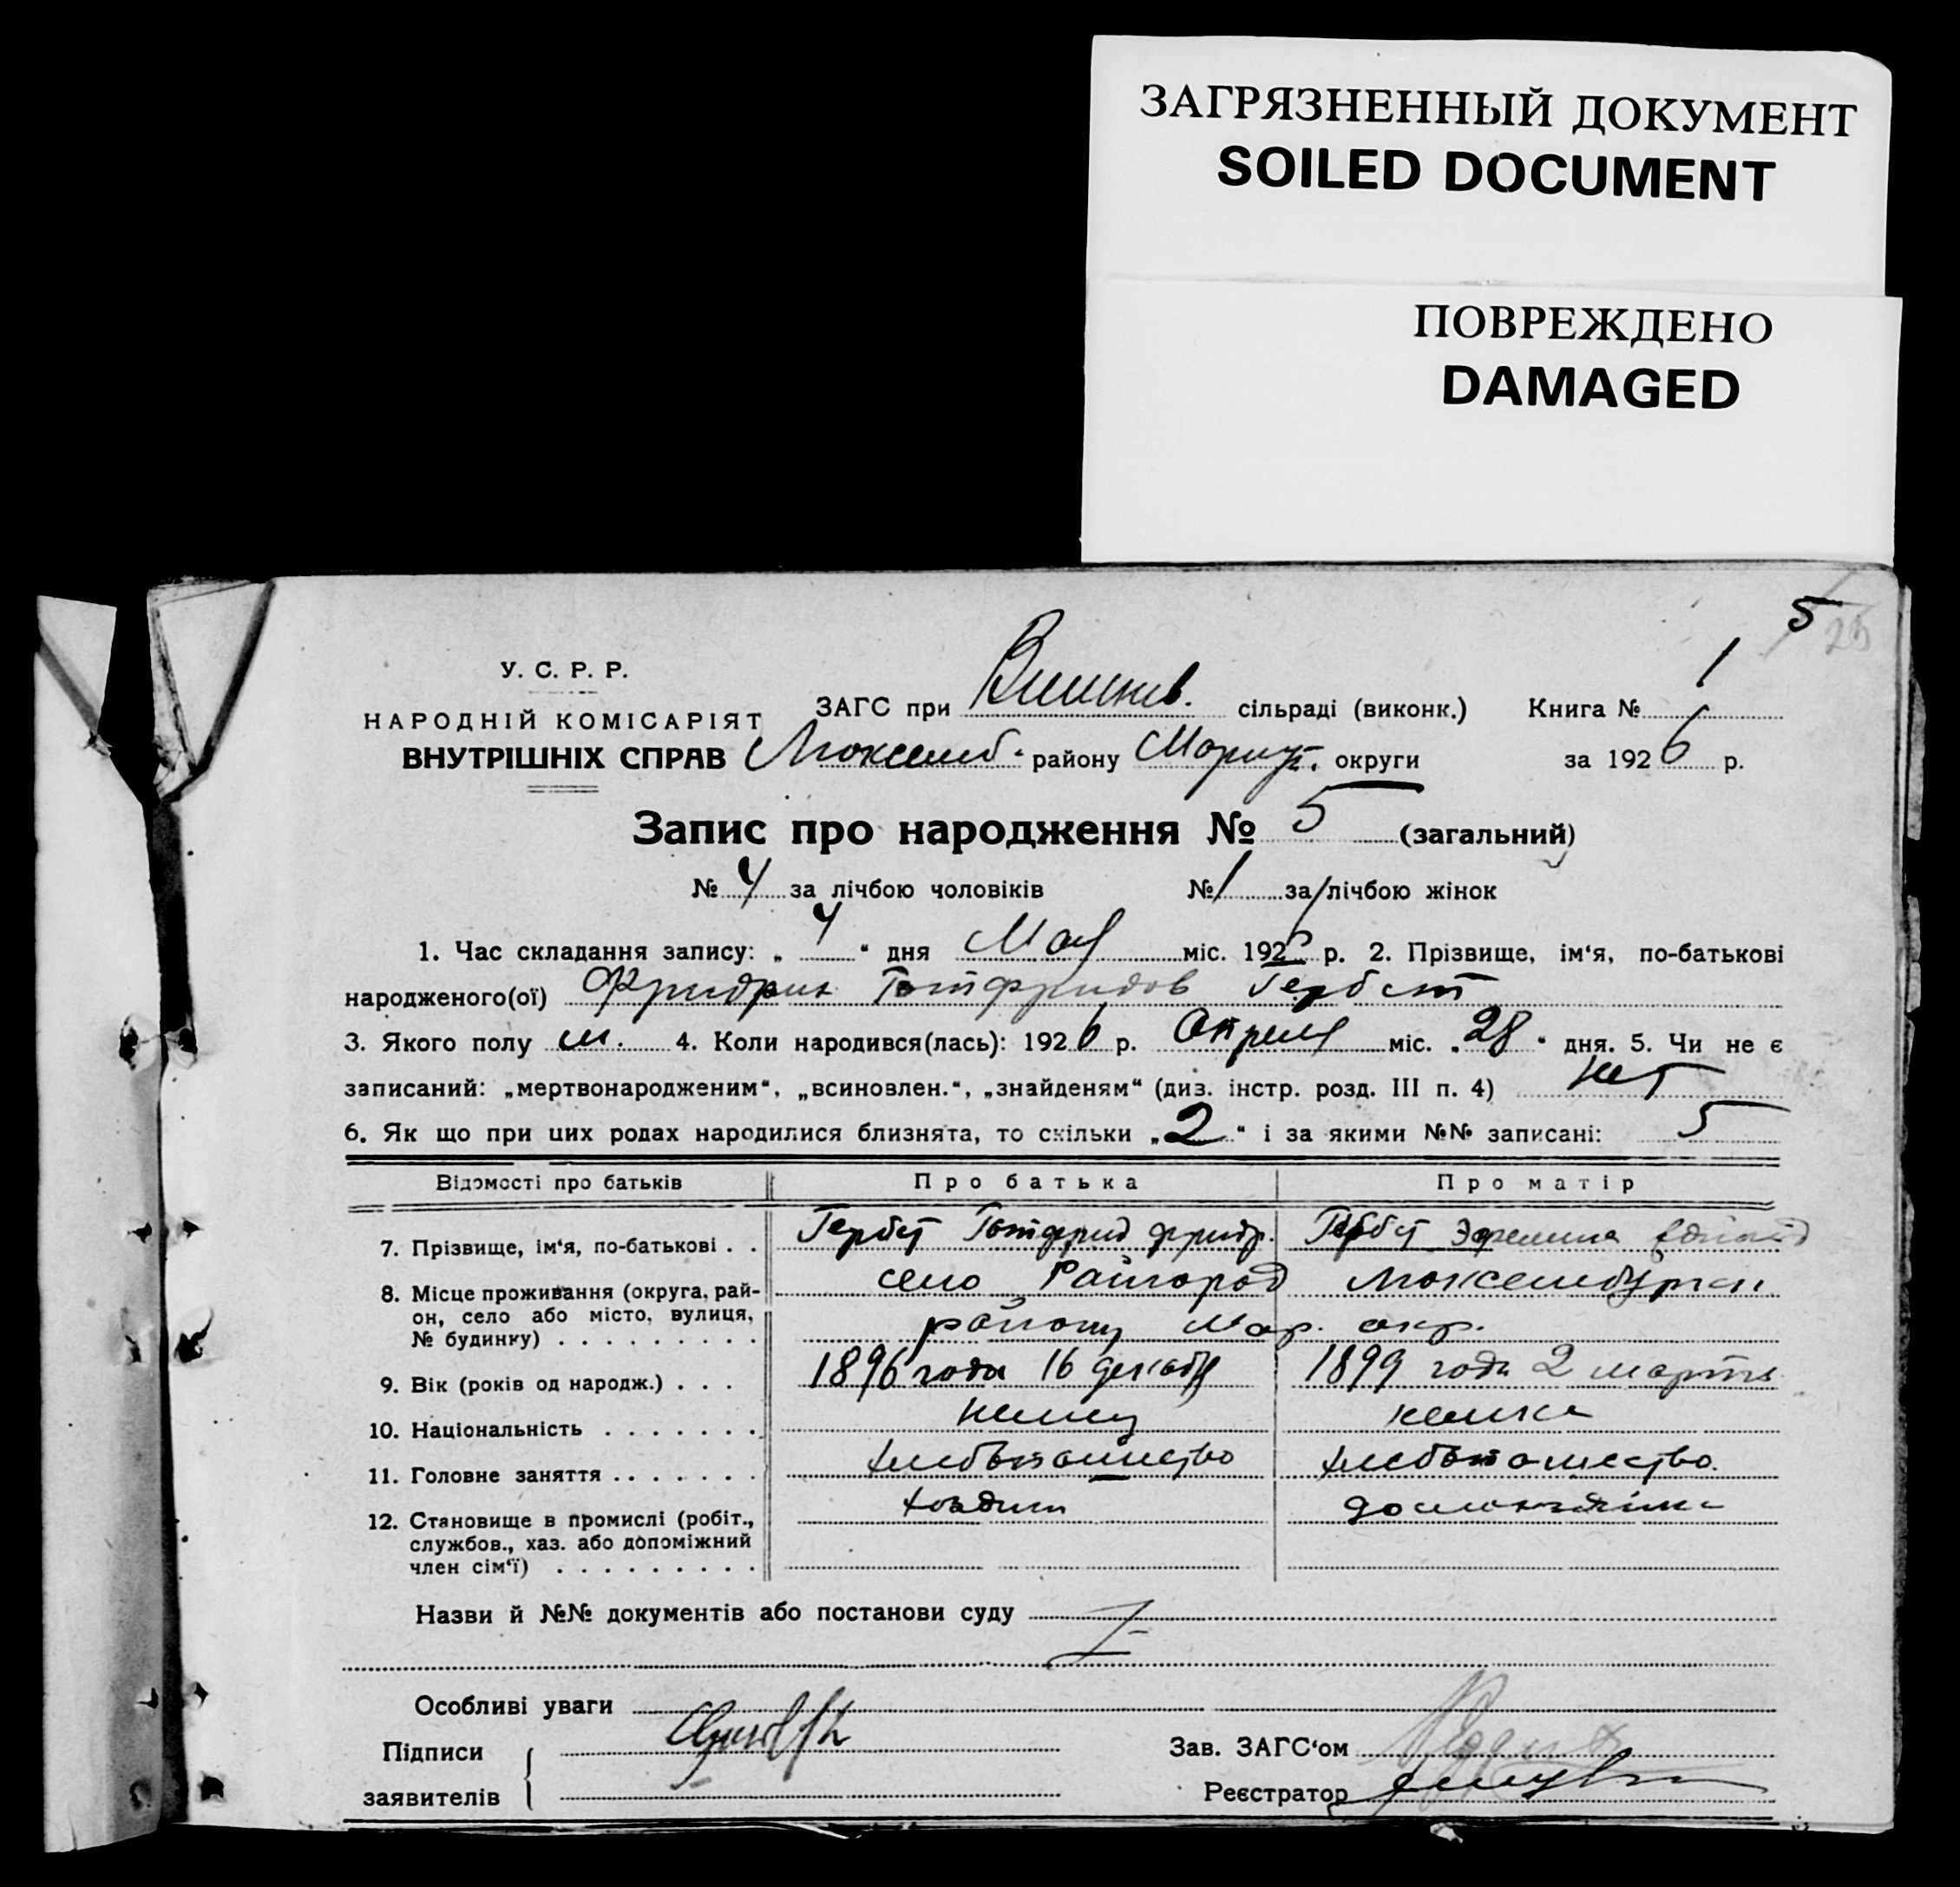 ЗАГРЯЗНЕННЫЙ ДОКУМЕНТ
SOILED DOCUMENT
ПОВРЕЖДЕНО
DAMAGED
5
25
У. С. Р. Р.
НАРОДНІЙ КОМІСАРІЯТ
ВНУТРІШНІХ СПРАВ
ЗАГС при Вишнев. сільраді (виконк.) Книга № 1
Люксемб. району Мариуп. округи за 1926 р.
Запис про народження № 5 (загальний)
№ 4 за лічбою чоловіків № 1 за лічбою жінок
1. Час складання запису: „ 4 “ дня Мая міс. 1926 р. 2. Прізвище, ім‘я, по-батькові
народженого(ої) Фридрих Готфридов Гербст
3. Якого полу м. 4. Коли народився(лась): 1926 р. Апреля міс. „ 28 “ дня. 5. Чи не є
записаний: „мертвонародженим“, „всиновлен.“, „знайденям“ (див. інстр. розд. III п. 4) нет
6. Як що при цих родах народилися близнята, то скільки „ 2 “ і за якими №№ записані: 5
Відомості про батьків Про батька Про матір
7. Прізвище, ім‘я, по-батькові . . Гербст Готфрид Фридр. Гербст
8. Місце проживання (округа, рай-
он, село або місто, вулиця,
№ будинку) . . . . . . . . .
село Райгород Люксембургск.
району Мар. окр.
9. Вік (років од народж.) . . . 1896 года 16 декабря 1899 года 2 марта
10. Національність . . . . . . . немец немка
11. Головне заняття . . . . . . . хлебопашество хлебопашество.
12. Становище в промислі (робіт.,
службов., хаз. або допоміжний
член сім‘ї) . . . . . . . . .
хозяин домохозяйка
Назви й №№ документів або постанови суду
Особливі уваги
Підписи
заявителів
Зав. ЗАГС‘ом
Реєстратор